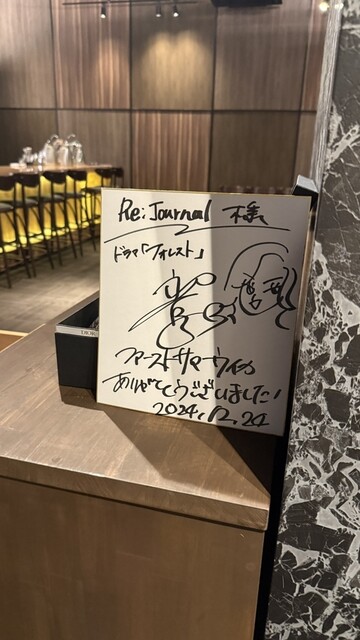 Re:Journal 様
ドラマ「フォレスト」
ファーストサマーウイカ
ありがとうございました!
2024.12.24